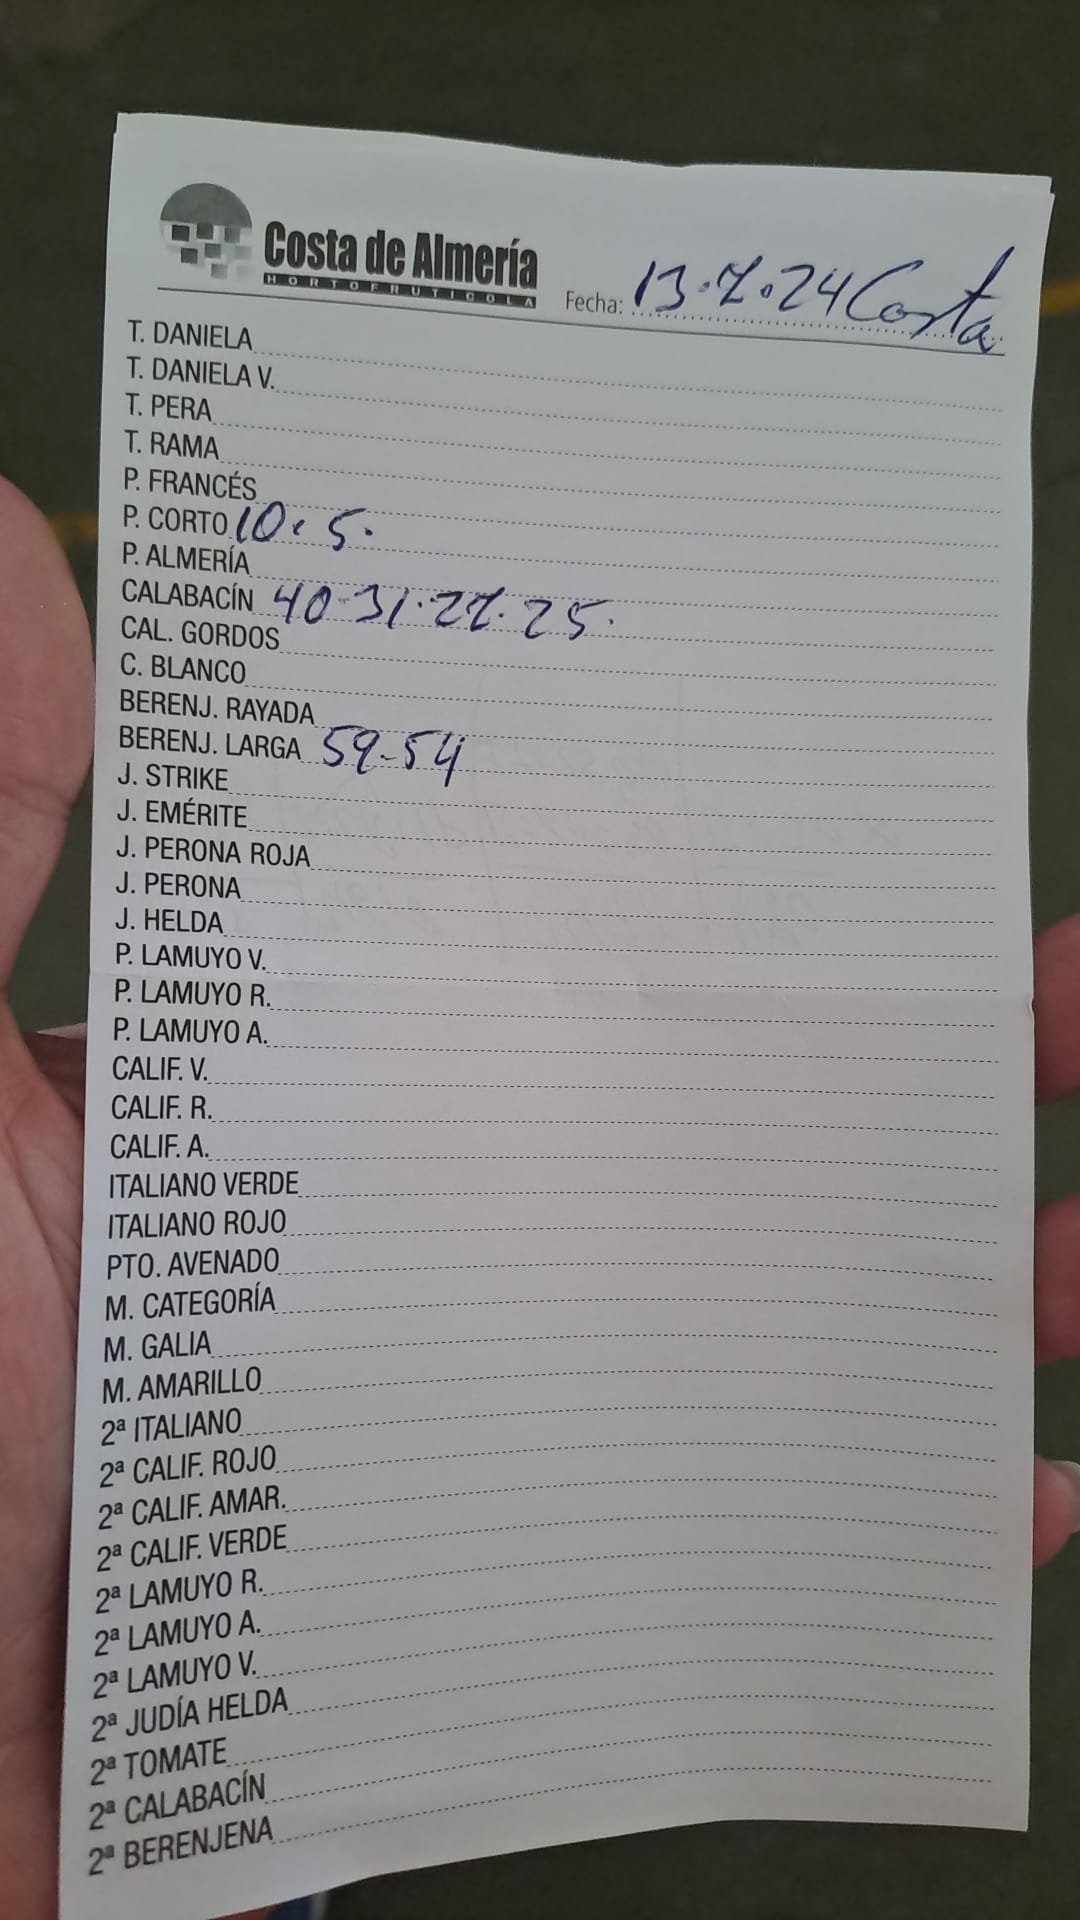 Costa de Almería
HORTOFRUTICOLA
Fecha: 13.7.24 Costa
T. DANIELA
T. DANIELA V.
T. PERA
T. RAMA
P. FRANCÉS
P. CORTO 10. 5.
P. ALMERÍA
CALABACÍN 40-31.27.25.
CAL. GORDOS
C. BLANCO
BERENJ. RAYADA
BERENJ. LARGA 59-54
J. STRIKE
J. EMÉRITE
J. PERONA ROJA
J. PERONA
J. HELDA
P. LAMUYO V.
P. LAMUYO R.
P. LAMUYO A.
CALIF. V.
CALIF. R.
CALIF. A.
ITALIANO VERDE
ITALIANO ROJO
PTO. AVENADO
M. CATEGORÍA
M. GALIA
M. AMARILLO
2ª ITALIANO
2ª CALIF. ROJO
2ª CALIF. AMAR.
2ª CALIF. VERDE
2ª LAMUYO R.
2ª LAMUYO A.
2ª LAMUYO V.
2ª JUDÍA HELDA
2ª TOMATE
2ª CALABACÍN
2ª BERENJENA